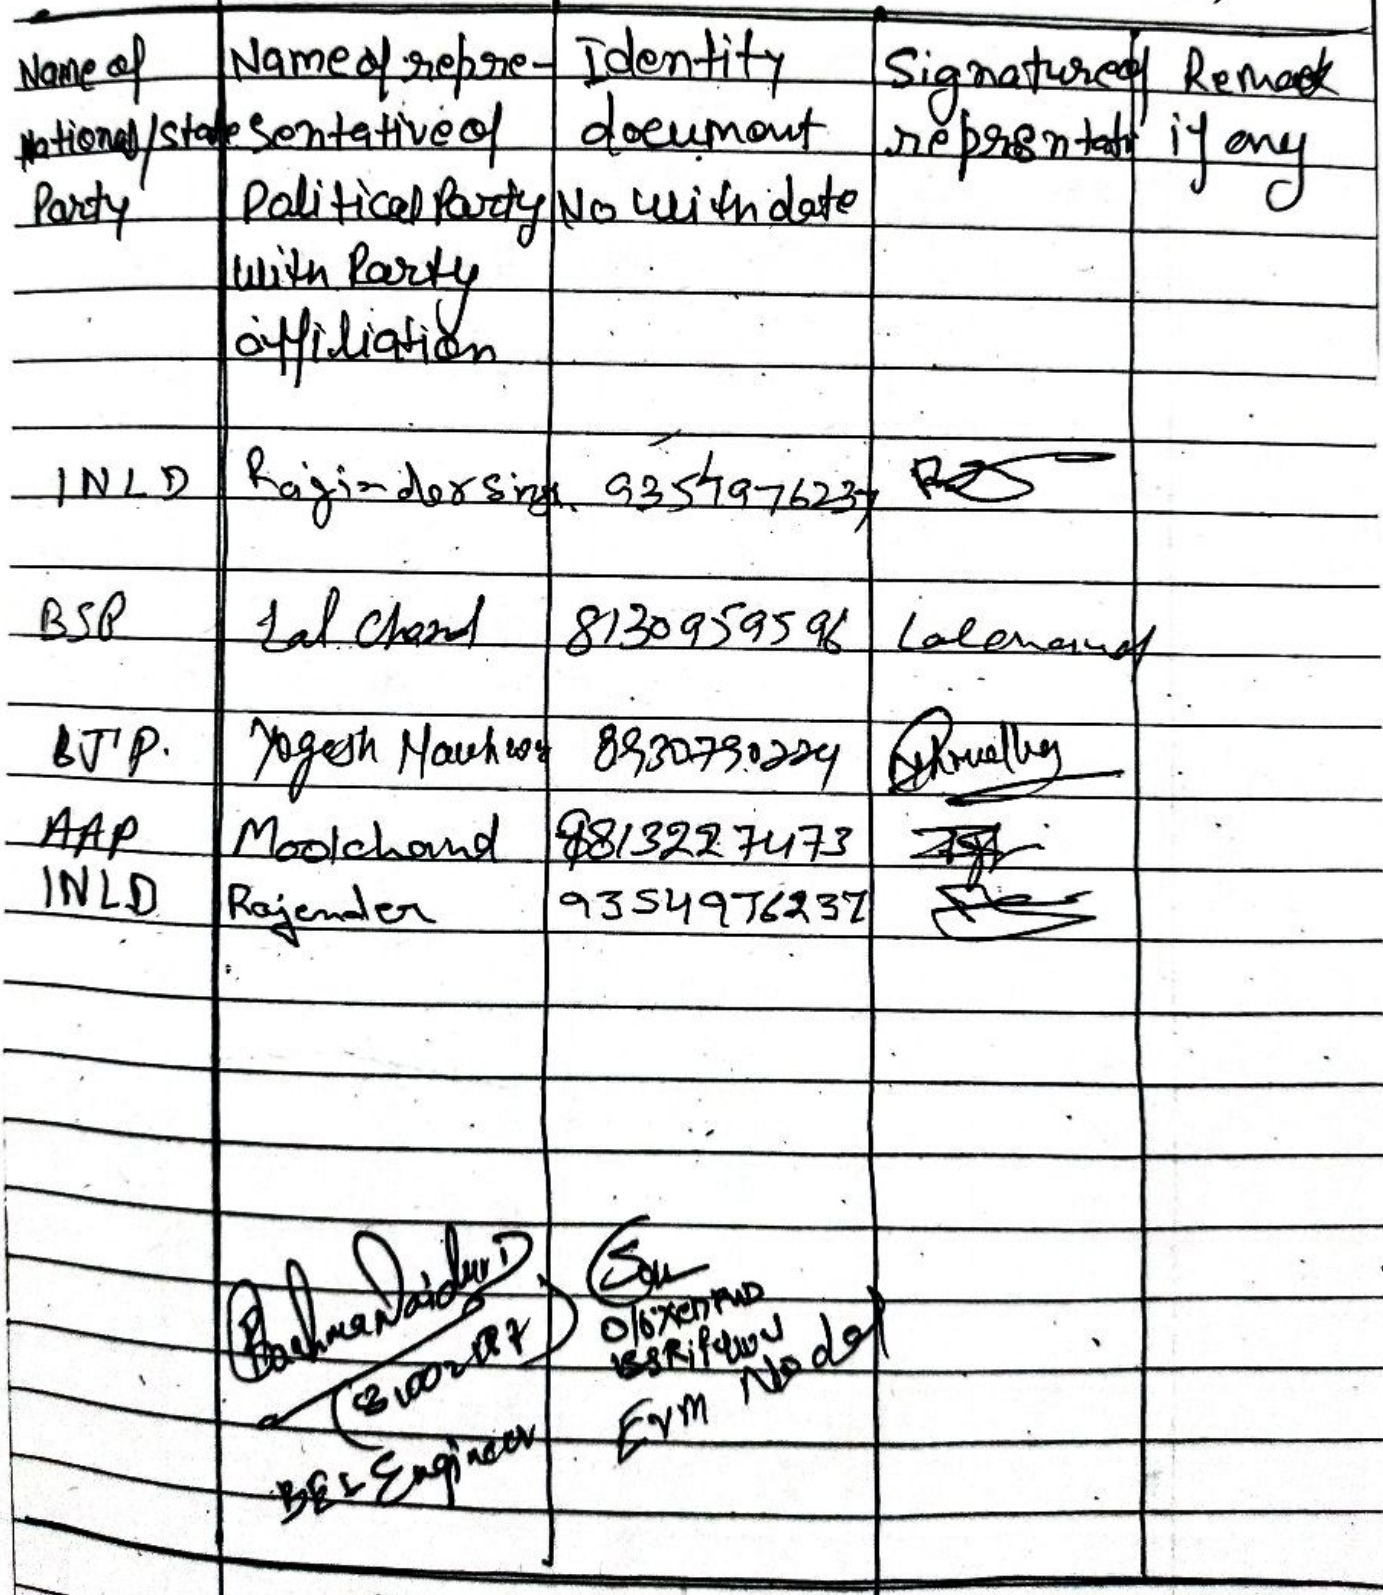 Name of National/State Party
Name of repre-sentative of Political Party with Party affiliation
Identity document No with date
Signature of reprsentati
Remark if any
INLD Rajinder Singh 9354976237
BSP Lal Chand 8130959596 Lalchand
BJP. Yogesh 8930790224
AAP Moolchand 9813227473
INLD Rajender 9354976237
BEL Engineer
EVM Nodal